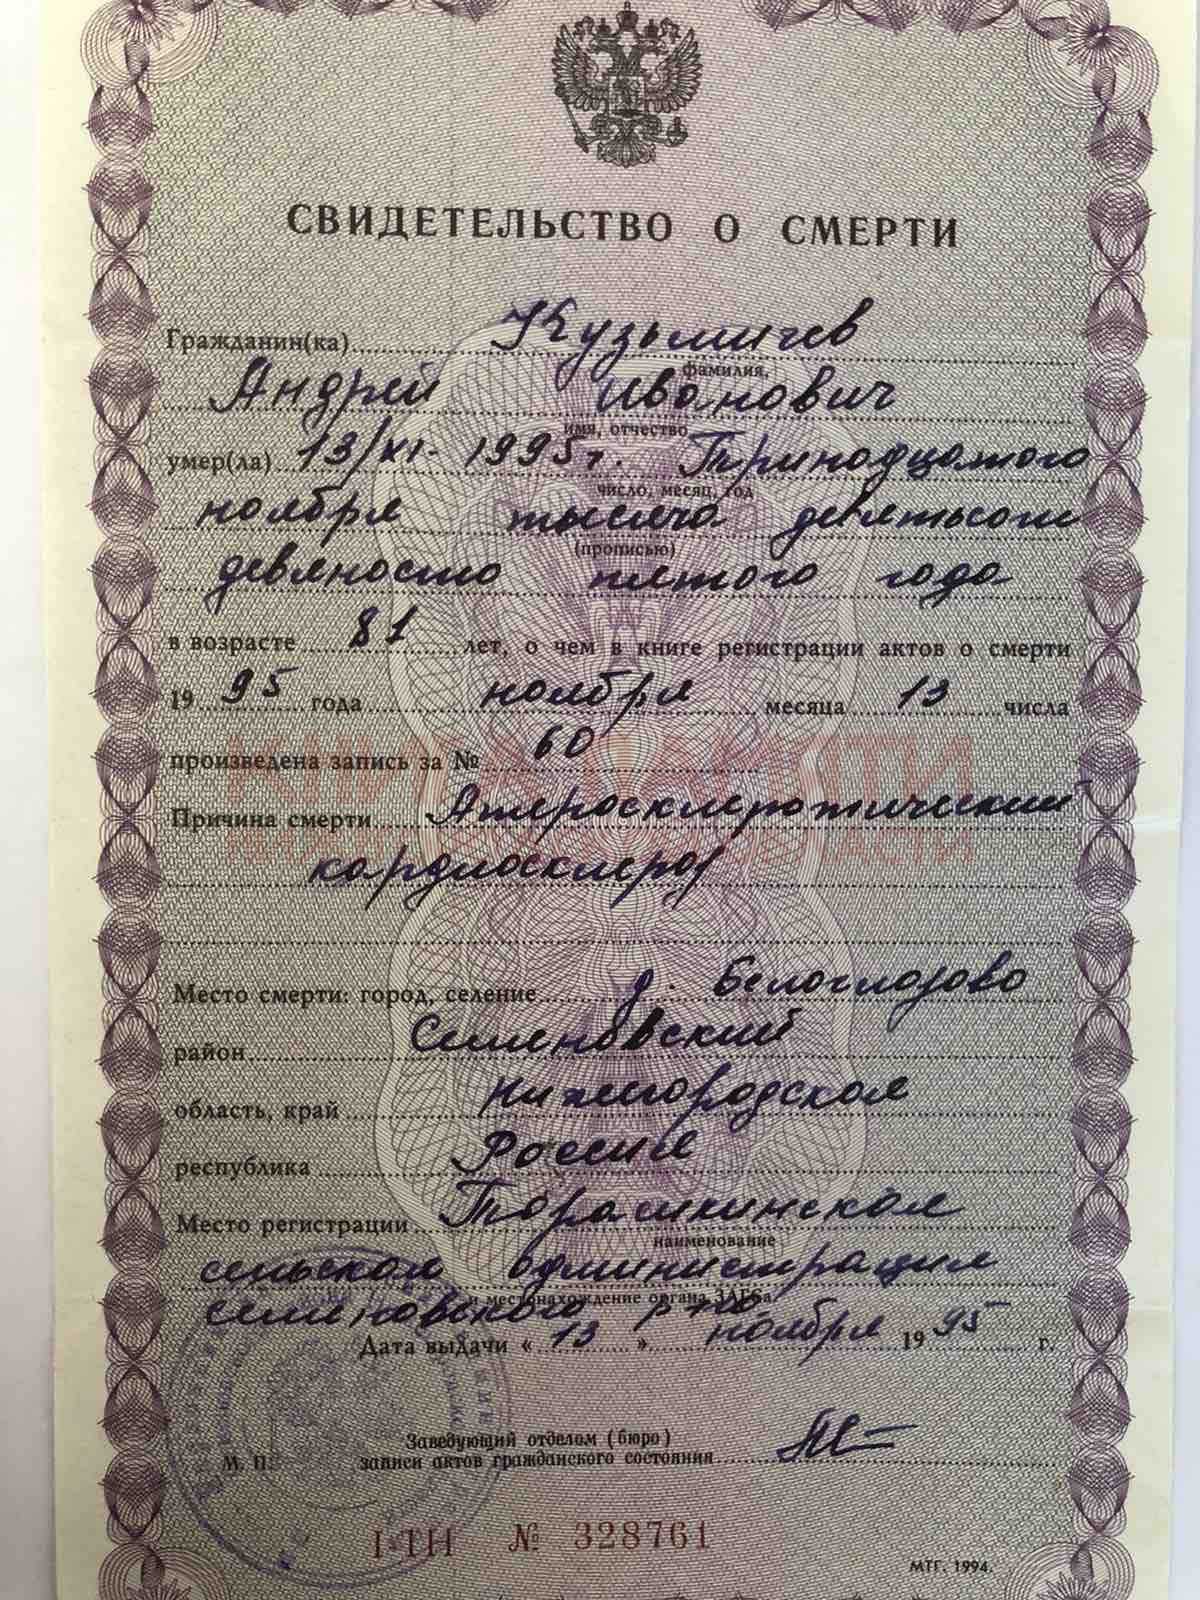 СВИДЕТЕЛЬСТВО О СМЕРТИ
Гражданин(ка) Кузьмичев
фамилия,
Андрей Иванович
имя, отчество
умер(ла) 13/XI- 1995г. Тринадцатого
число, месяц, год
ноября тысяча девятьсот
(прописью)
девяносто пятого года
в возрасте 81 лет, о чем в книге регистрации актов о смерти
19 95 года ноября месяца 13 числа
произведена запись за № 60
КНИГА ПАМЯТИ
Причина смерти Атеросклеротический
НИЖЕГОРОДСКОЙ ОБЛАСТИ
кардиосклероз
Место смерти: город, селение д. Белоглазово
район Семеновский
область, край Нижегородская
республика Россия
Место регистрации
наименование
сельская администрация
и местонахождение органа ЗАГСа
Семеновского р-на
Дата выдачи « 13 » ноября 19 95 г.
Заведующий отделом (бюро)
М. П. записи актов гражданского состояния
I-ТН № 328761
МТГ. 1994.